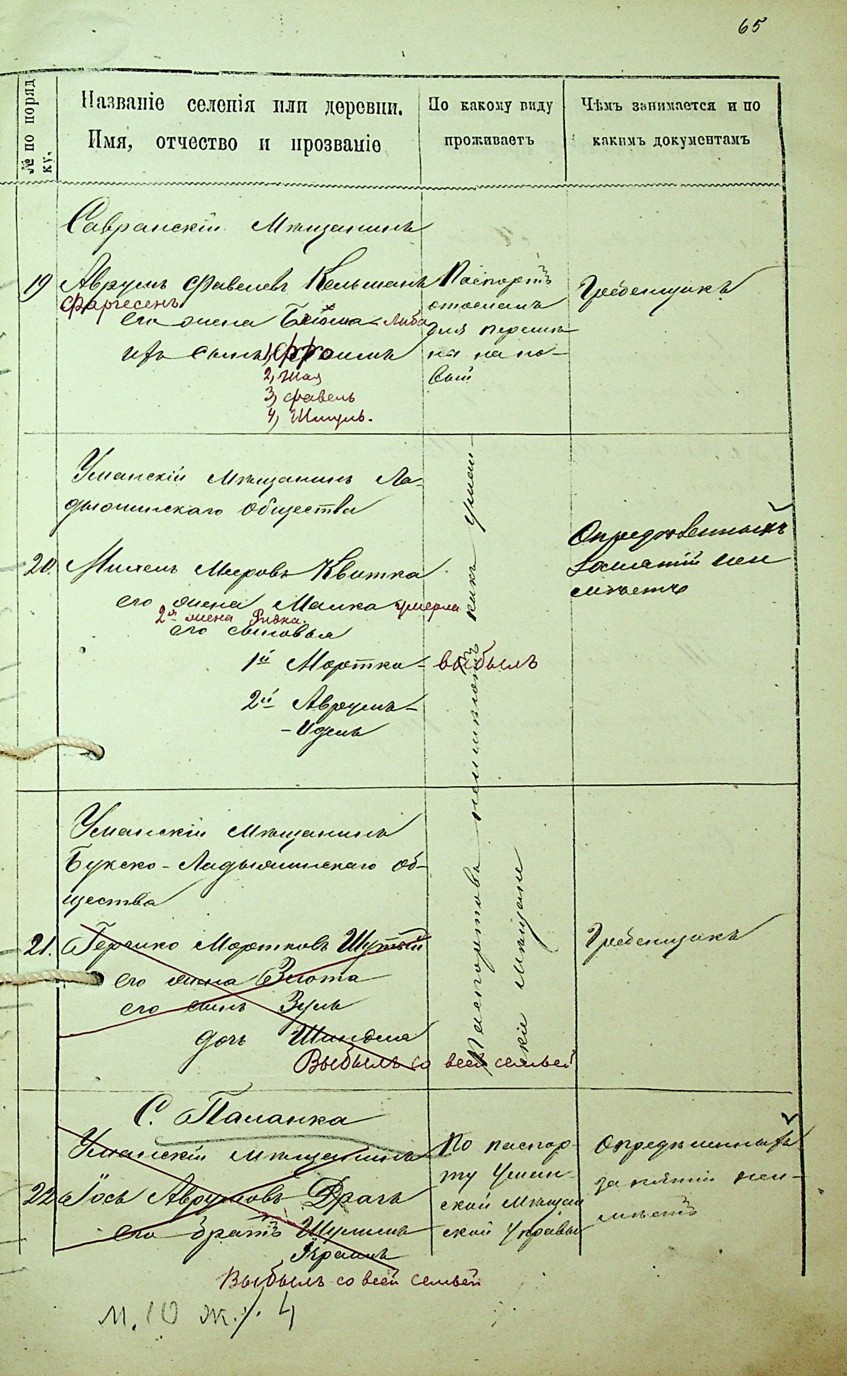 65
№ по поряд
ку.
Названіе селенія или деревни.
Имя, отчество и прозваніе
По какому виду
проживаетъ
Чѣмъ занимается и по
какимъ документамъ
Савранскій Мѣщанинъ
19 Аврумъ Фавелевъ Кельманъ
Фаргесенъ
его жена - Либа
ихъ сынъ 1, Фроимъ
2, Шая
3, Фавель
4, Шмуль.
Паспортъ
отосланъ
для перемѣ-
ны на но-
вый
Гребенщикъ
Уманскій Мѣщанинъ Ла-
дыжинскаго Общества
20. Михель Мееровъ Квитка
его жена Малка умерла
2я жена Ривка
его сыновья
1й Мортко - выбылъ
2й Аврумъ-
-Идель
Опредѣленныхъ
занятій неи
мѣетъ
Уманскій Мѣщанинъ
Букско-Ладыжинскаго Об-
щества
21. Гершко Мортковъ
его жена Злота
его сынъ Зуль
дочь Шиндля
Выбылъ со всей семьей
Гребенщикъ
Паспортовъ неимѣютъ какъ Уман-
скіе мѣщане
С. Паланка
Уманскій мѣщанинъ
22 Іось Аврумовъ Драчъ
его братъ Шулимъ
Абрамъ
Выбылъ со всей семьей
По паспор-
ту Уман-
ской Мѣщан
ской Управы
Опредѣленныхъ
занятій неи-
мѣетъ
м. 10 ж. 4